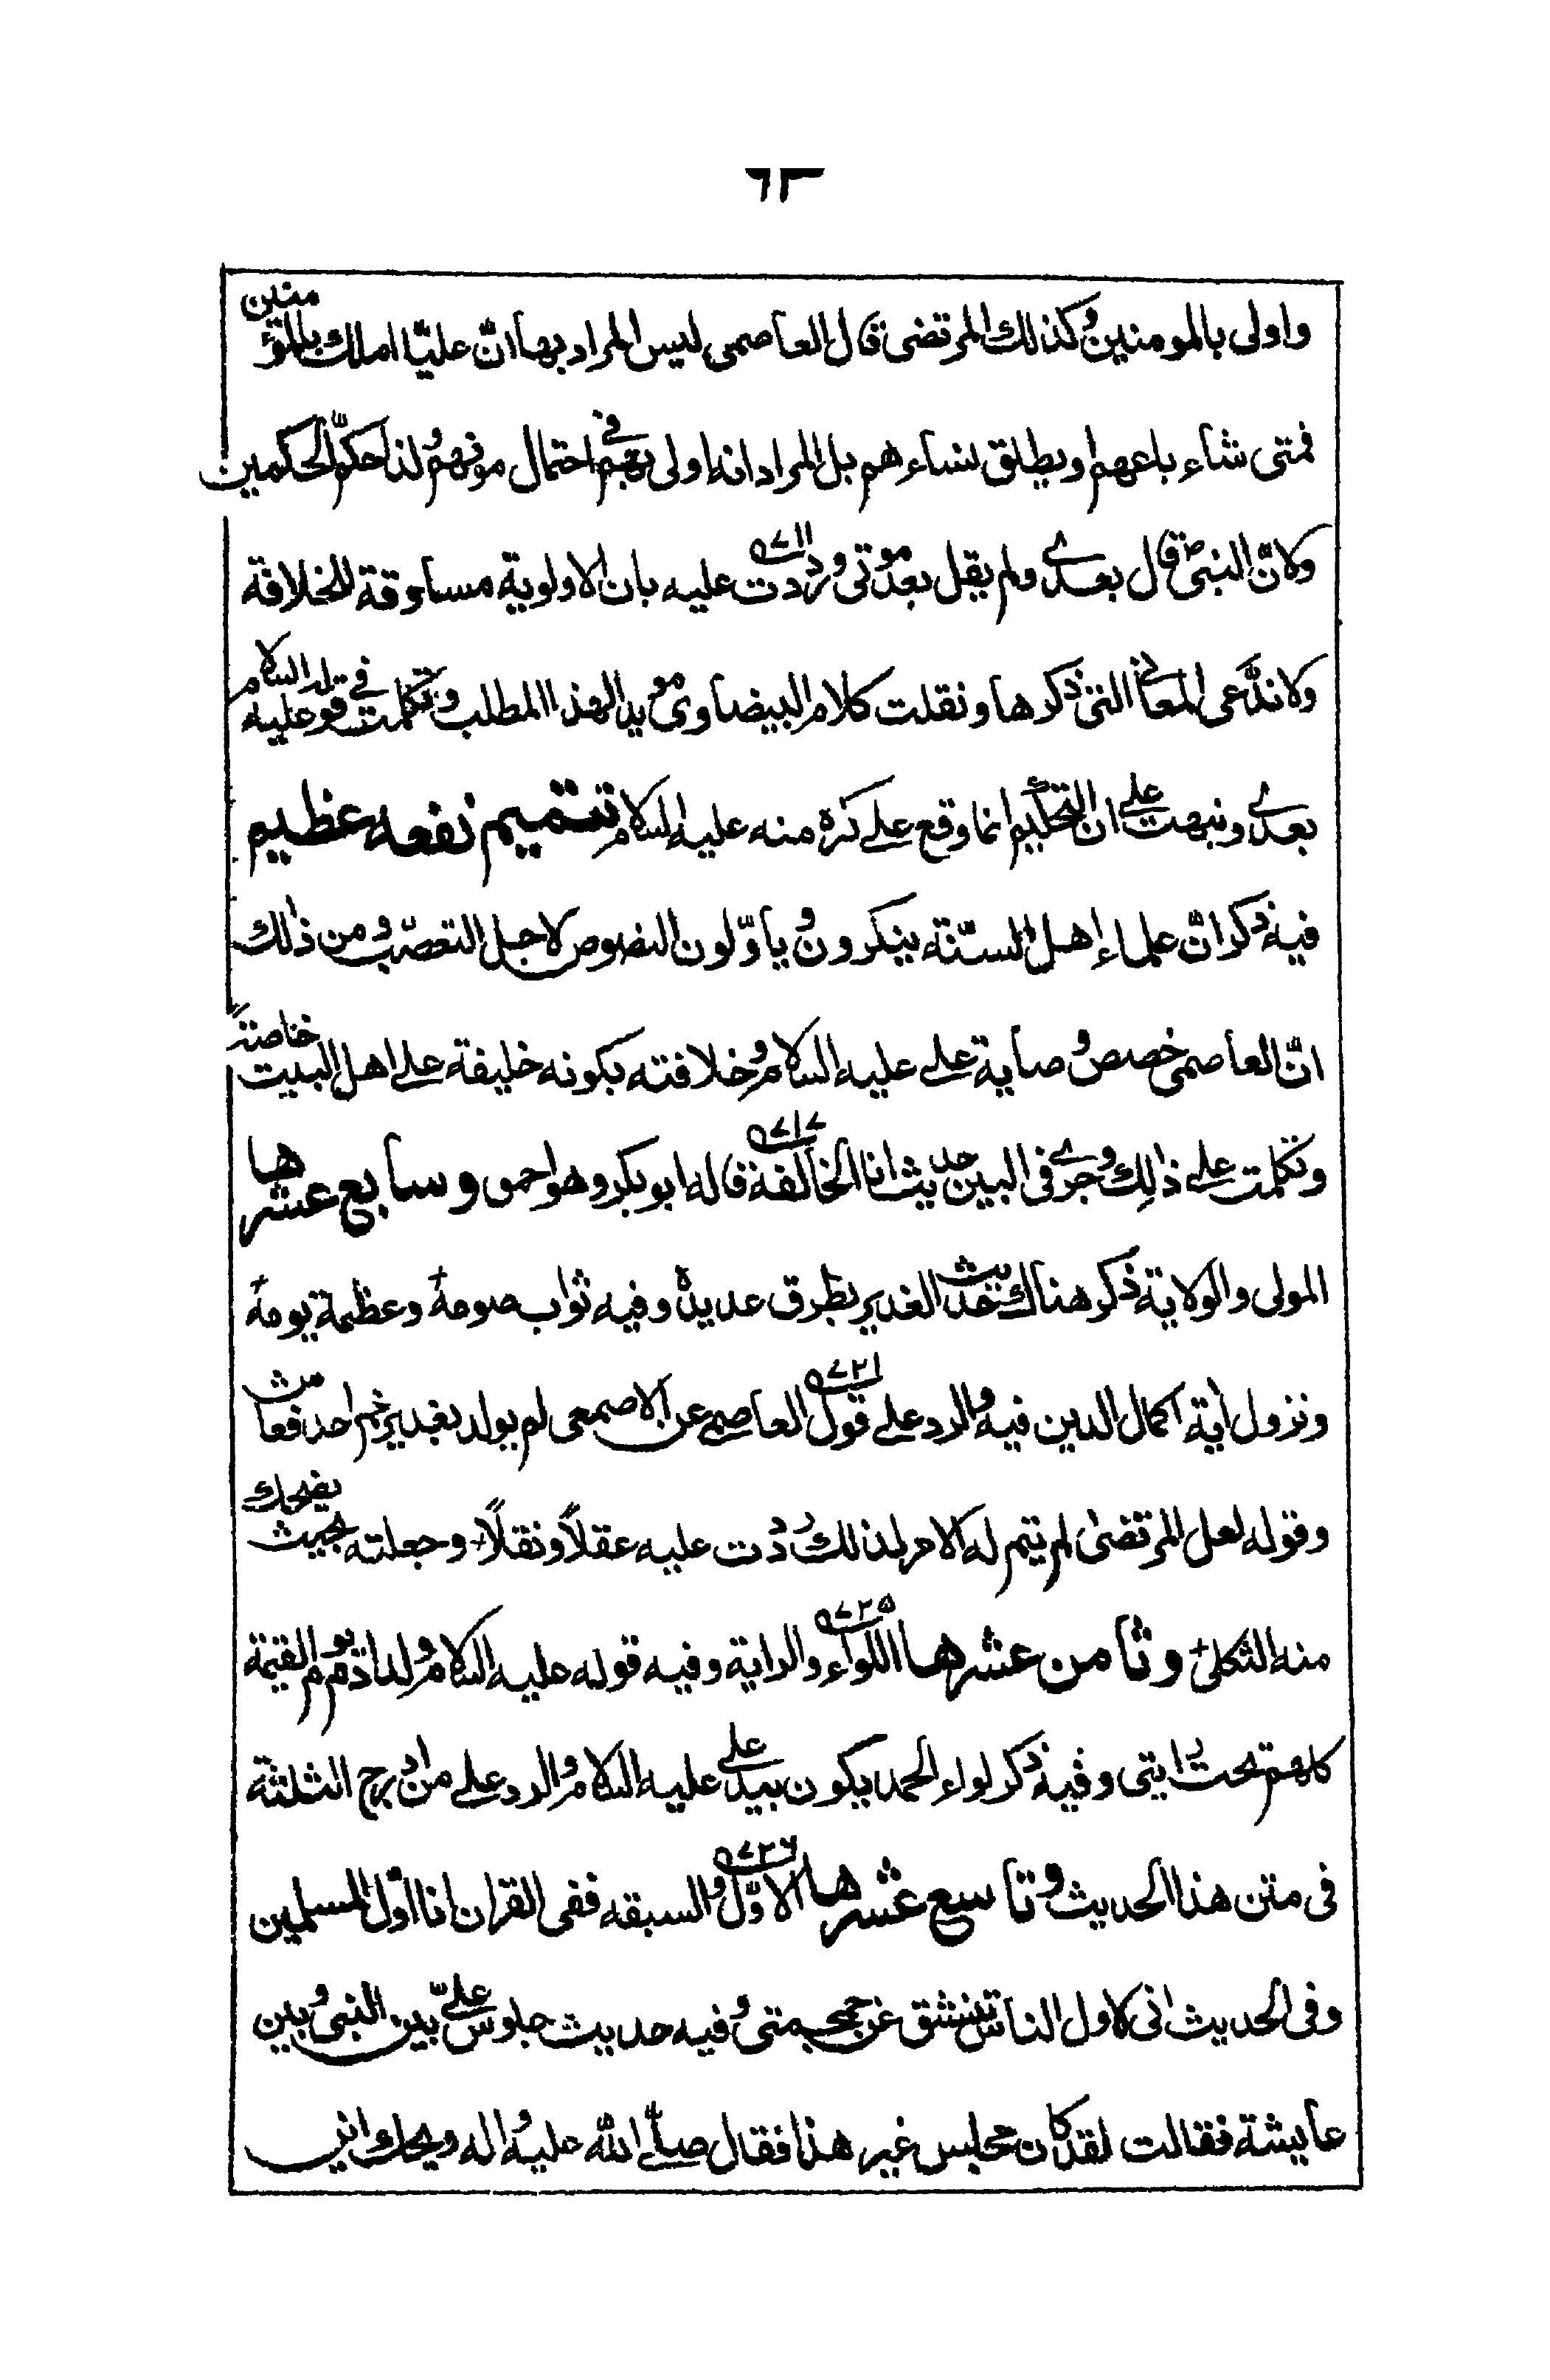 ٦٣
واولى بالمومنين وكذلك المرتضى قال العاصمى ليس المراد بها انّ عليّا املك بالمؤمنين
فمتى شاء باعهم او يطلق نساءهم بل المراد انه اولى بهم فى احتمال مونهم ولذا حكّم الحكمين
ولانّ النبىّ ص قال بعدے ولم يقل بعد موتى ورددت ٥٧١١ عليه بان الاولوية مساوقة للخلافة
ولا ندّعى المعانى التى ذكرها ونقلت كلام البيضاوى مويد الهذا المطلب وتكلمت فى قوله عليه السلام
بعدے ونبهت على ان التحكيم انما وقع على كره منه عليه السلام تتميم نفعه عظيم
فيه ذكر انّ علماء اهل السّنة ينكرون وياوّلون النصوص لاجل التعصّب ومن ذلك
انّ العاصمى خصص وصاية على عليه السلام وخلافته بكونه خليفة على اهل البيت خاصةً
وتكلمت على ذلك وجرے فى البين حديث انا الخالفة ٥٧١٧ قاله ابو بكر وهو احمو وسابع عشرها
المولى والولاية ذكر هناك حديث الغدير بطرق عديدة وفيه ثواب صومه وعظمة يومه
ونزول اية اكمال الدين فيه والرد على قول ٥٧٢١ العاصمى عن الاصمعى لم يولد بغدير خم احد فعاش
وقوله لعل المرتضى لم يتم له الامر لذلك رددت عليه عقلاً ونقلاً وجعلته بحيث يضحك
منه الثكلى وثامن عشرها اللواء ٥٧٢٥ والراية وفيه قوله عليه السلام ولد ادم يوم القيمة
كلهم تحت رايتى وفيه ذكر لواء الحمد يكون بيد على عليه السلام والرد على من ادرج الثلثة
فى متن هذا الحديث وتاسع عشرها الاوّل ٥٧٢٦ والسبقه ففى القران انا اوّل المسلمين
وفى الحديث انى لاول الناس تنشق عن جمجمتى وفيه حديث جلوس علىّ بين النبى وبين
عايشة فقالت لقد كان مجلس غير هذا فقال صلّى الله عليه واله ويحك اتريـ